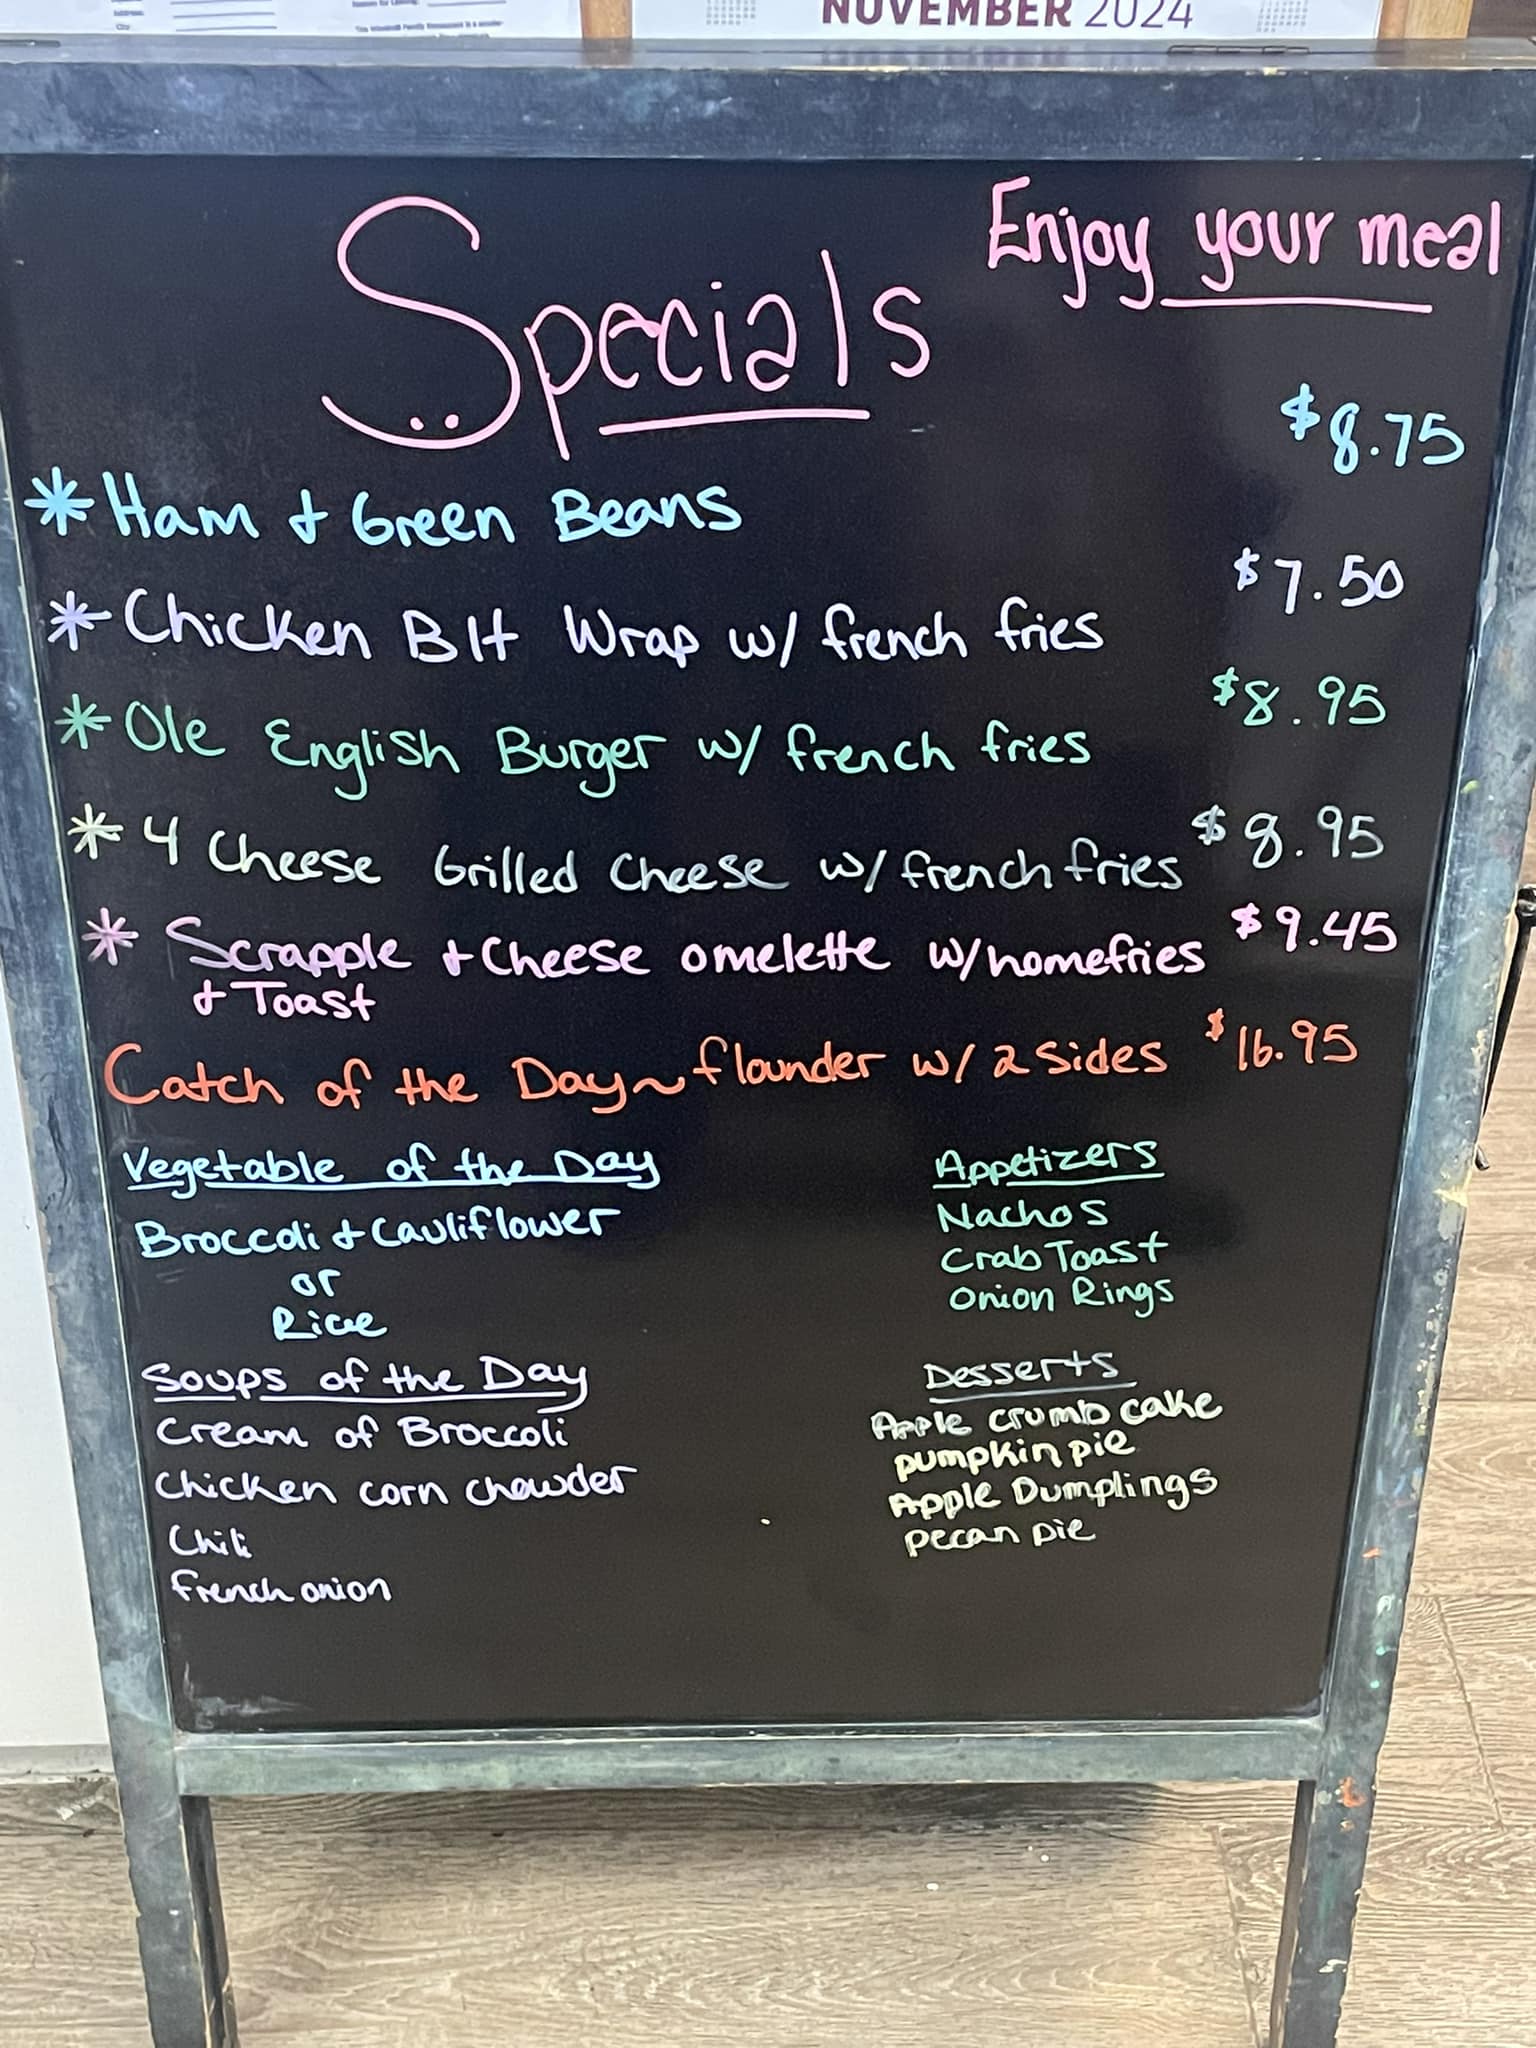 NOVEMBER 2024
Specials
Enjoy your meal
* Ham & Green Beans $8.75
* Chicken Blt Wrap w/ french fries $7.50
* Ole English Burger w/ french fries $8.95
* 4 Cheese Grilled Cheese w/ french fries $8.95
* Scrapple & Cheese omelette w/ homefries $9.45
& Toast
Catch of the Day ~ flounder w/ 2 Sides $16.95
Vegetable of the Day
Broccoli & Cauliflower
or
Rice
Soups of the Day
Cream of Broccoli
Chicken corn chowder
Chili
french onion
Appetizers
Nachos
Crab Toast
Onion Rings
Desserts
Apple crumb cake
pumpkin pie
Apple Dumplings
pecan pie